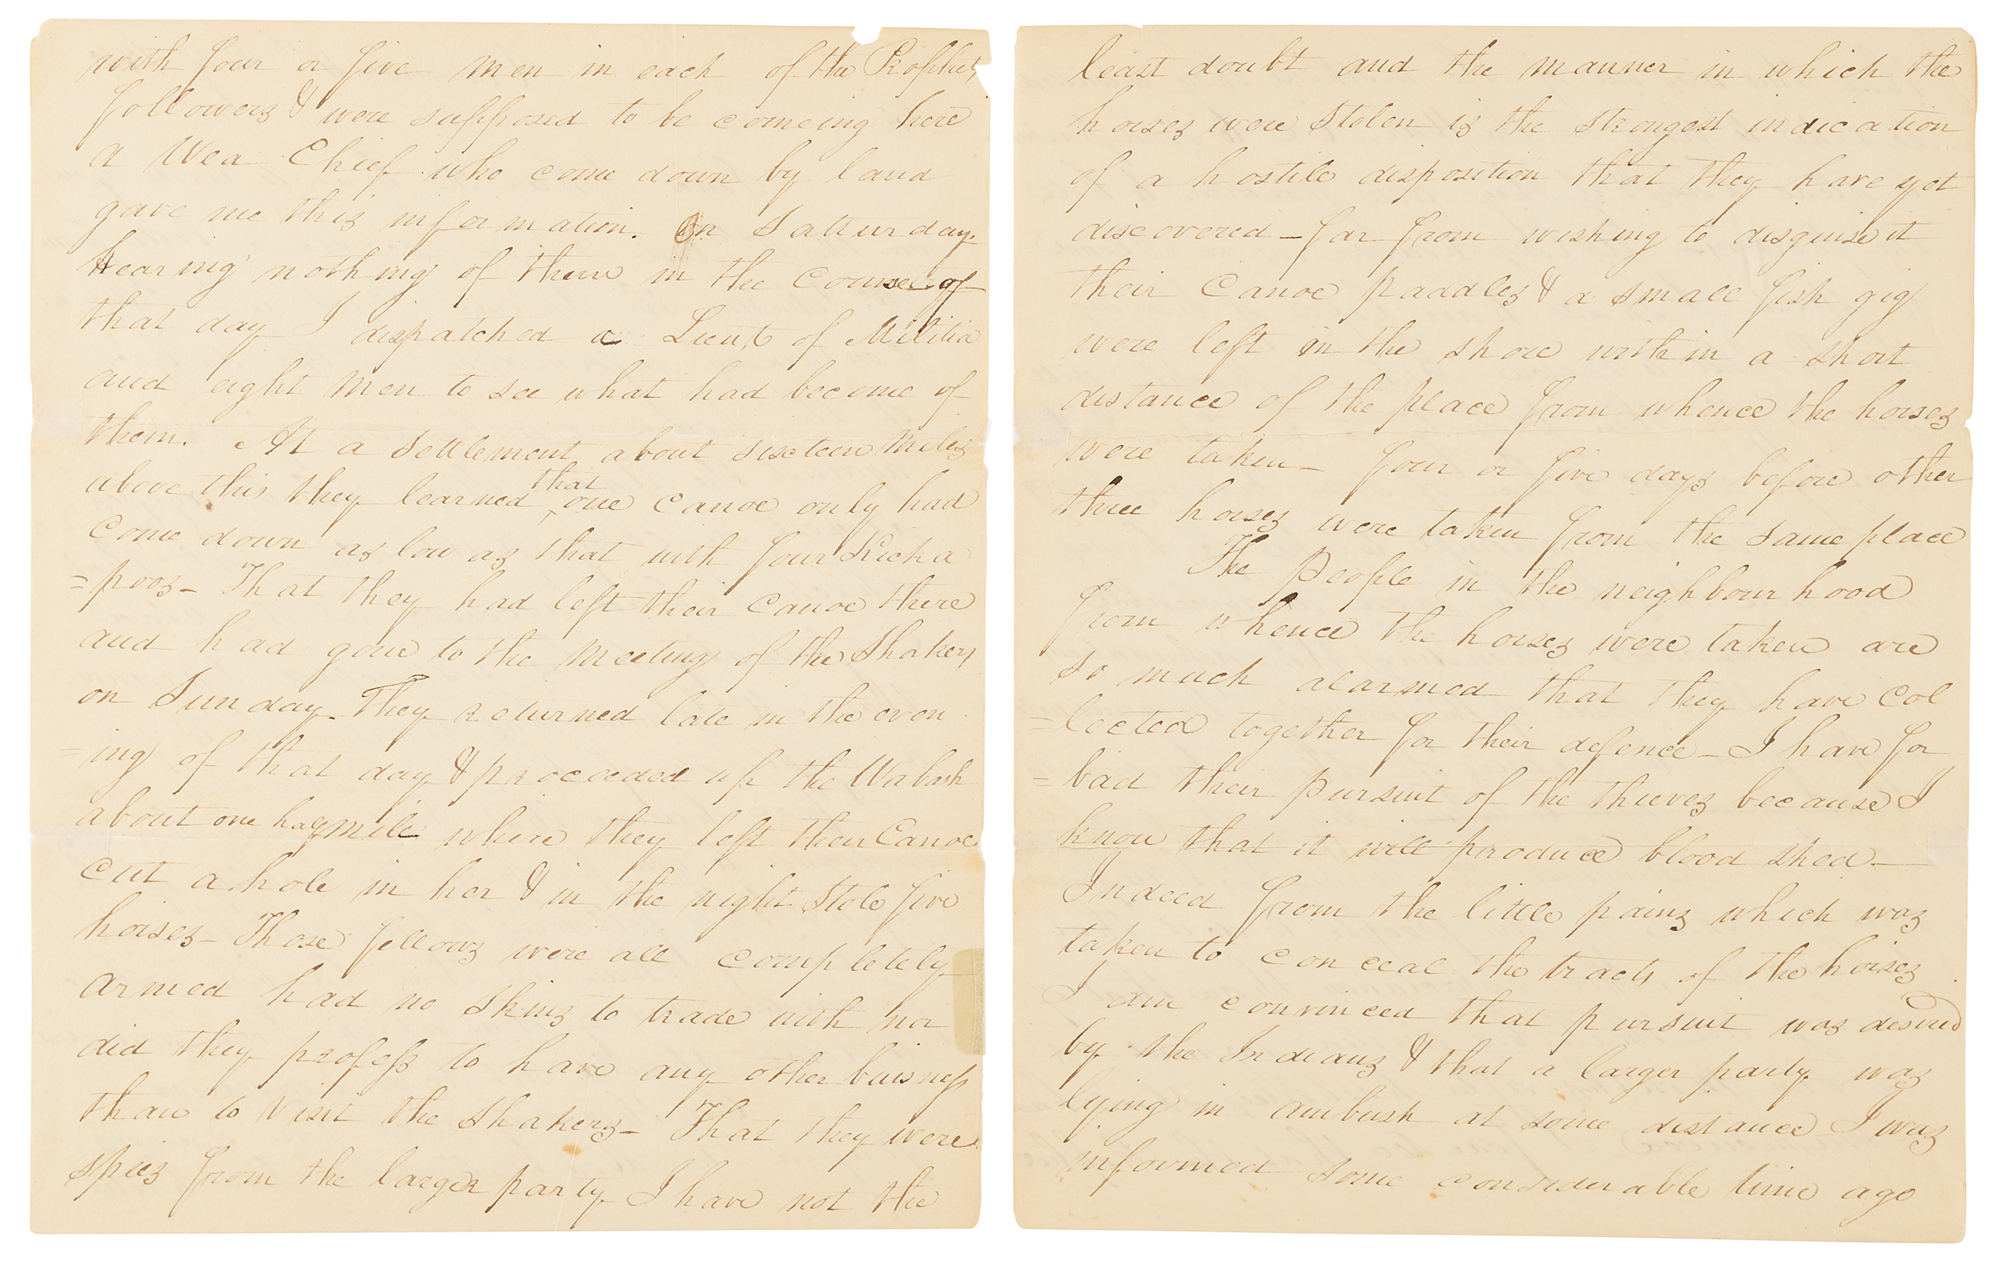 with four or five men in each of the Prophets
followers & were supposed to be comeing here
a Wea Chief who come down by land
gave me this information. On Satturday
Hearing nothing of them in the course of
that day I dispatched a Lieut. of Militia
and eight men to see what had become of
them. At a settlement about sixteen miles
above this they learned that one Canoe only had
come down as low as that with four Kicka
=poos – That they had left their Canoe there
and had gone to the meeting of the Shakers
on Sunday. They returned late in the even
=ing of that day & proceeded up the Wabash
about one half mile where they left their Canoe
cut a hole in her & in the night Stole five
horses – Those fellows were all completely
armed had no Skins to trade with nor
did they profess to have any other buisness
than to Visit the Shakers – That they were
spies from the larger party I have not the
least doubt and the manner in which the
horses were Stolen is the strongest indication
of a hostile disposition that they have yet
discovered – far from wishing to disguise it
their Canoe paddles & a small fish gig
were left in the shore within a short
distance of the place from whence the horses
were taken – four or five days before other
three horses were taken from the same place
The People in the neighbourhood
from whence the horses were taken are
so much alarmed that they have col
=lected together for their defence – I have for
=bad their pursuit of the thieves because I
know that it will produce blood shed –
Indeed from the little pains which was
taken to conceal the tracts of the horses
I am convinced that pursuit was desired
by the Indians & that a larger party was
lying in ambush at some distance I was
informed some considerable time ago